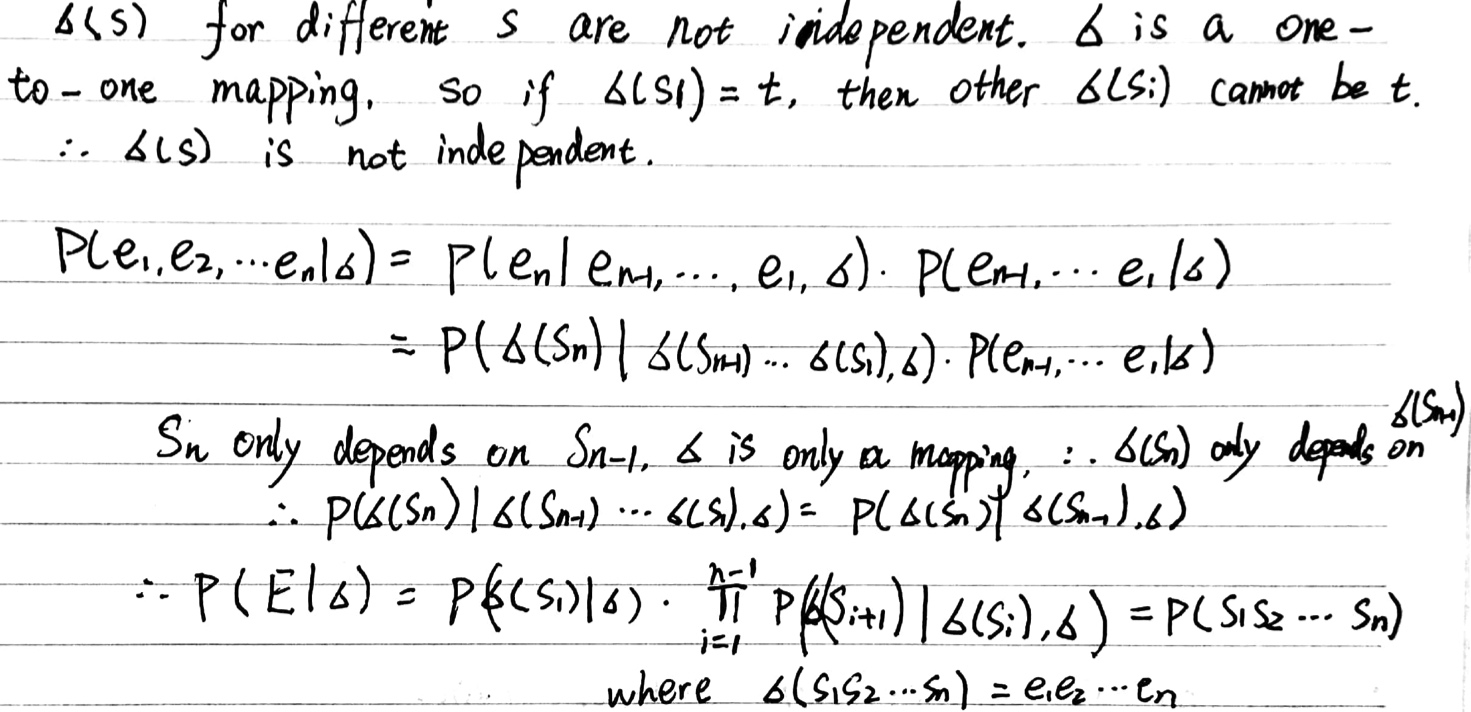 σ(s) for different s are not independent. σ is a one-
to-one mapping, so if σ(s1) = t, then other σ(si) cannot be t.
∴ σ(s) is not independent.
P(e₁,e₂,⋯eₙ|σ) = P(eₙ| eₙ₋₁,⋯, e₁, σ)· P(eₙ₋₁,⋯ e₁|σ)
= P(σ(Sₙ)| σ(Sₙ₋₁)⋯ σ(S₁),σ)· P(eₙ₋₁,⋯ e₁|σ)
Sₙ only depends on Sₙ₋₁, σ is only a mapping, ∴ σ(Sₙ) only depends on σ(Sₙ₋₁)
∴ P(σ(Sₙ)| σ(Sₙ₋₁) ⋯ σ(S₁),σ) = P(σ(Sₙ)| σ(Sₙ₋₁),σ)
∴ P(E|σ) = P(σ(S₁)|σ)· ∏ᵢ₌₁ⁿ⁻¹ P(σ(Sᵢ₊₁)| σ(Sᵢ),σ) = P(S₁S₂ ⋯ Sₙ)
where σ(S₁S₂⋯Sₙ) = e₁e₂⋯eₙ